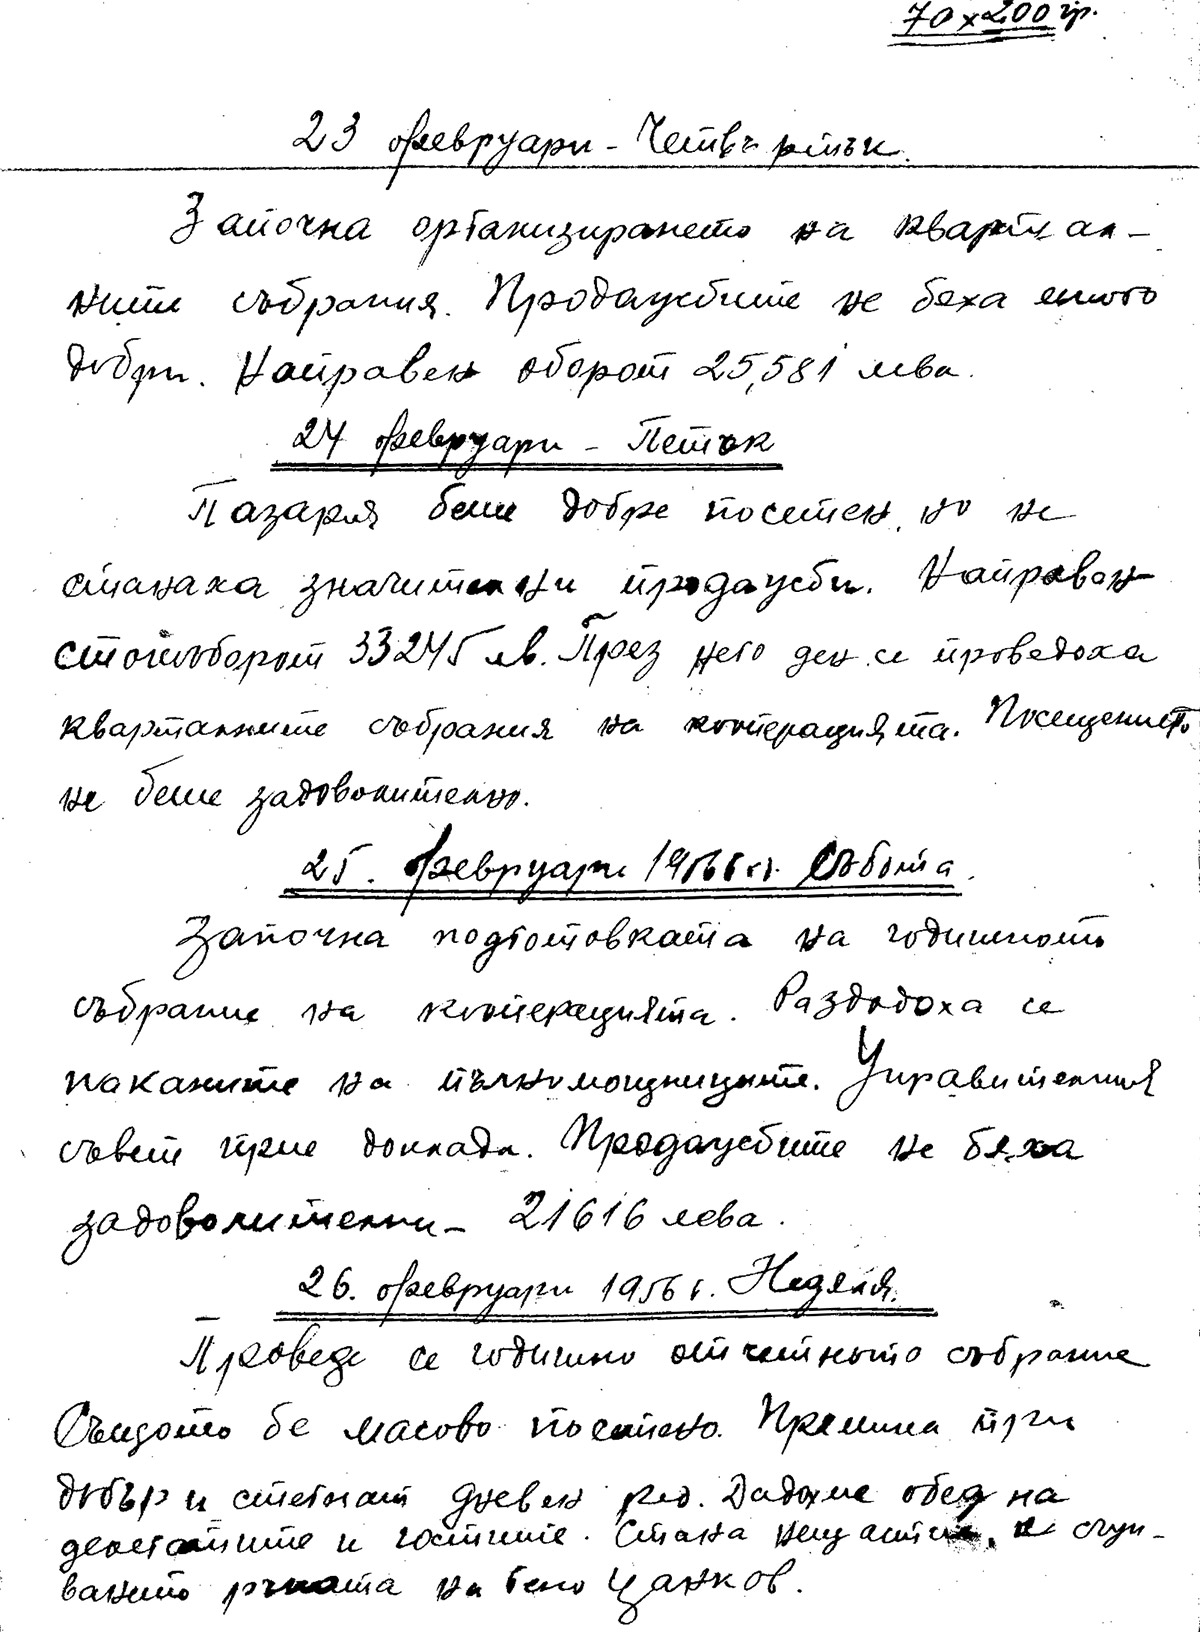 70 x 200 гр.
23 февруари - Четвъртък.
Започна организирането на квартал-
ните събрания. Продажбите не беха много
добри. Направен оборот 25,581 лева.
24 февруари - Петък
Пазаря беше добре посетен, но не
станаха значителни продажби. Направен
стокооборот 33245 лв. През него ден се проведоха
кварталните събрания на кооперацията. Посещението
не беше задоволително.
25. февруари 1956 г. Събота.
Започна подготовката на годишното
събрание на кооперацията. Раздадоха се
поканите на пълномощниците. Управителния
съвет прие доклада. Продажбите не бяха
задоволителни - 21616 лева.
26. февруари 1956 г. Неделя.
Проведе се годишно отчетното събрание
Същото бе масово посетено. Премина при
добър и стегнат дневен ред. Дадохме обед на
делегатите и гостите. Стана нещастие, с счуп-
ването ръката на бено Цанков.